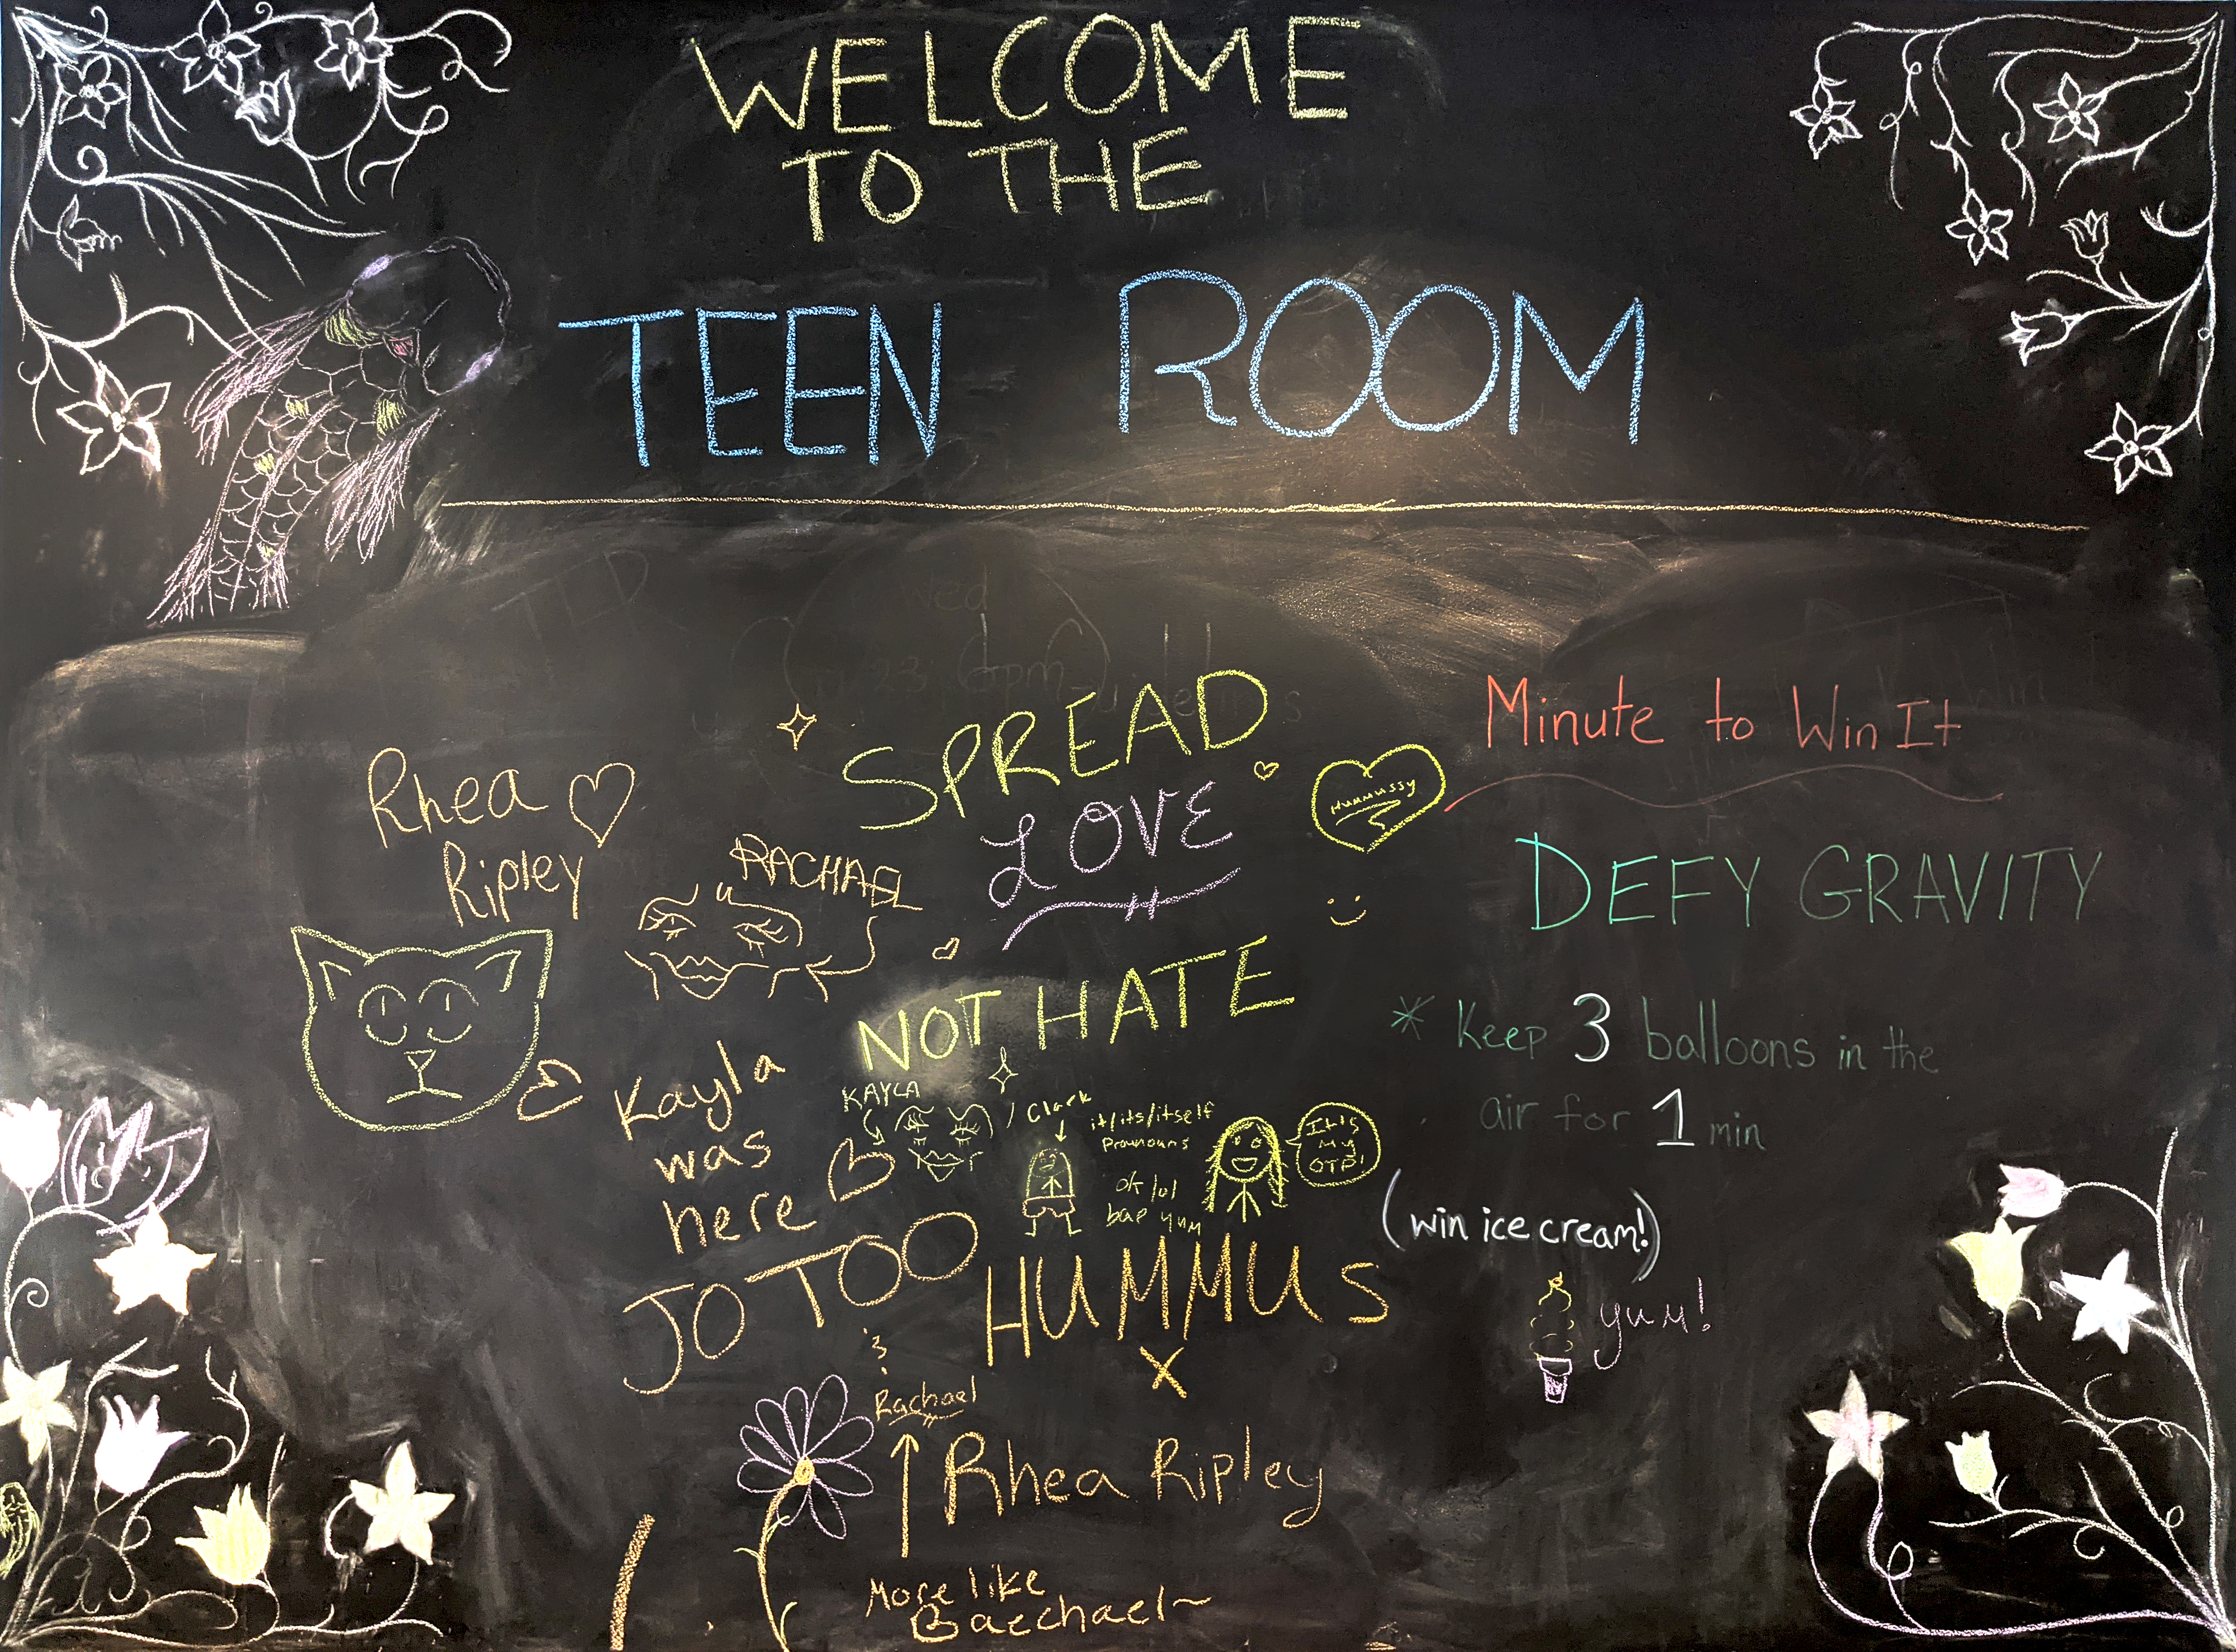 WELCOME
TO THE
TEEN ROOM
Wed
23 6pm
SPREAD
LOVE
NOT HATE
Hummussy
Rhea
Ripley
RACHAEL
Kayla
was
here
KAYLA
Clark
it/its/itself
pronouns
ok lol
bae yum
It's
my
OTP!
JO TOO
&
Rachael
HUMMUS
X
Rhea Ripley
More like
Baechael~
Minute to Win It
DEFY GRAVITY
* Keep 3 balloons in the
air for 1 min
(win ice cream!)
yum!